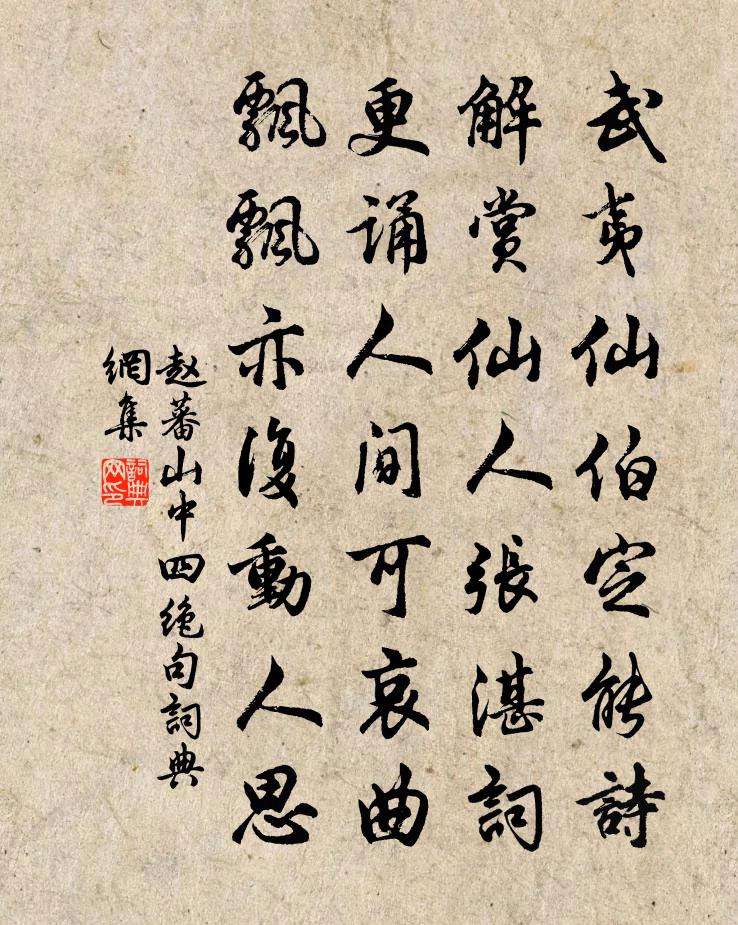 武夷仙伯定能詩
解賞仙人張湛詞
更誦人間可哀曲
飄飄亦復動人思
赵蕃山中四绝句詞典
網集
詞典
网印